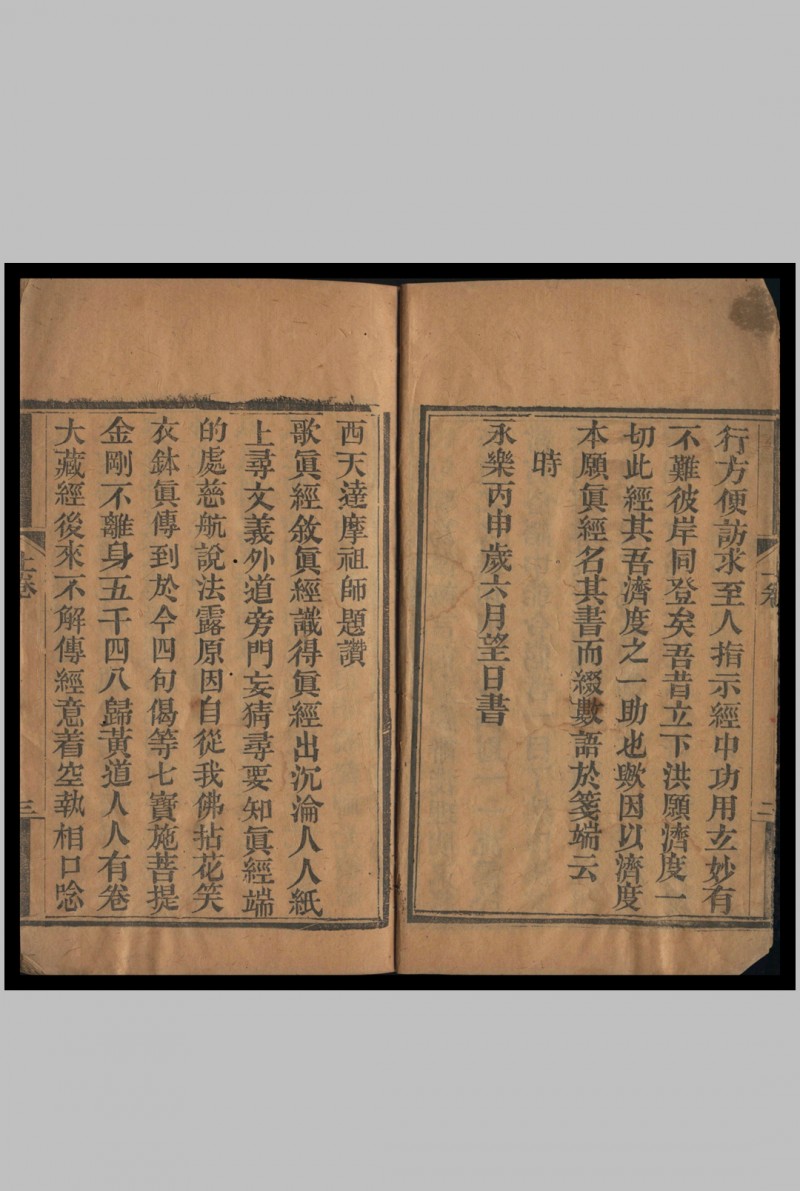 行方便訪求至人指示經中功用玄妙有
不難彼岸同登矣吾昔立下洪願濟度一
切此經其吾濟度之一助也歟因以濟度
本願眞經名其書而綴數語於箋端云
時
永樂丙申歲六月望日書
西天達摩祖師題讚
歌眞經敘眞經識得眞經出沉淪人人紙
上尋文義外道旁門妄猜尋要知眞經端
的處慈航說法露原因自從我佛拈花笑
衣鉢眞傳到於今四句偈等七寶施菩提
金剛不離身五千四八歸黃道人人有卷
大藏經後來不解傳經意着空執相口唸
上卷
三